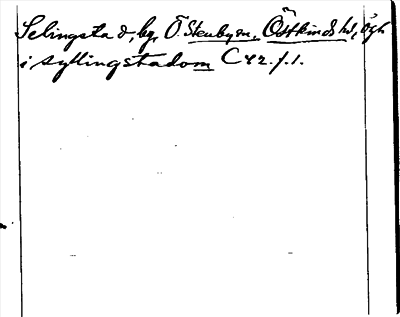 Selingstad, by, Ö. Stenbyn. Östkinds hd, Ögl.
i syllingstadom C 42. f. 1.